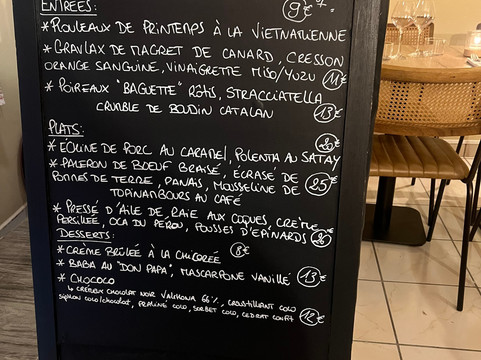 ENTRÉES:
9€
* ROULEAUX DE PRINTEMPS À LA VIETNAMIENNE
* GRAVLAX DE MAGRET DE CANARD, CRESSON
ORANGE SANGUINE, VINAIGRETTE MISO/YUZU 11€
* POIREAUX "BAGUETTE" RÔTIS, STRACCIATELLA
CRUMBLE DE BOUDIN CATALAN 13€
PLATS:
20€
* ÉCHINE DE PORC AU CARAMEL, POLENTA AU SATAY
* PALERON DE BOEUF BRAISÉ, ÉCRASÉ DE
POMMES DE TERRE, PANAIS, MOUSSELINE DE 25€
TOPINAMBOURS AU CAFÉ
* PRESSÉ D'AILE DE RAIE AUX COQUES, CRÈME
PERSILLÉE, OCA DU PÉROU, POUSSES D'ÉPINARDS 26
DESSERTS:
* CRÈME BRÛLÉE À LA CHICORÉE 8€
* BABA AU "DON PAPA", MASCARPONE VANILLÉ 13€
* CHOCOCO
↳ CRÉMEUX CHOCOLAT NOIR VALRHONA 66%, CROUSTILLANT COCO
SIPHON COCO/CHOCOLAT, PRALINÉ COCO, SORBET COCO, CEDRAT CONFIT 12€